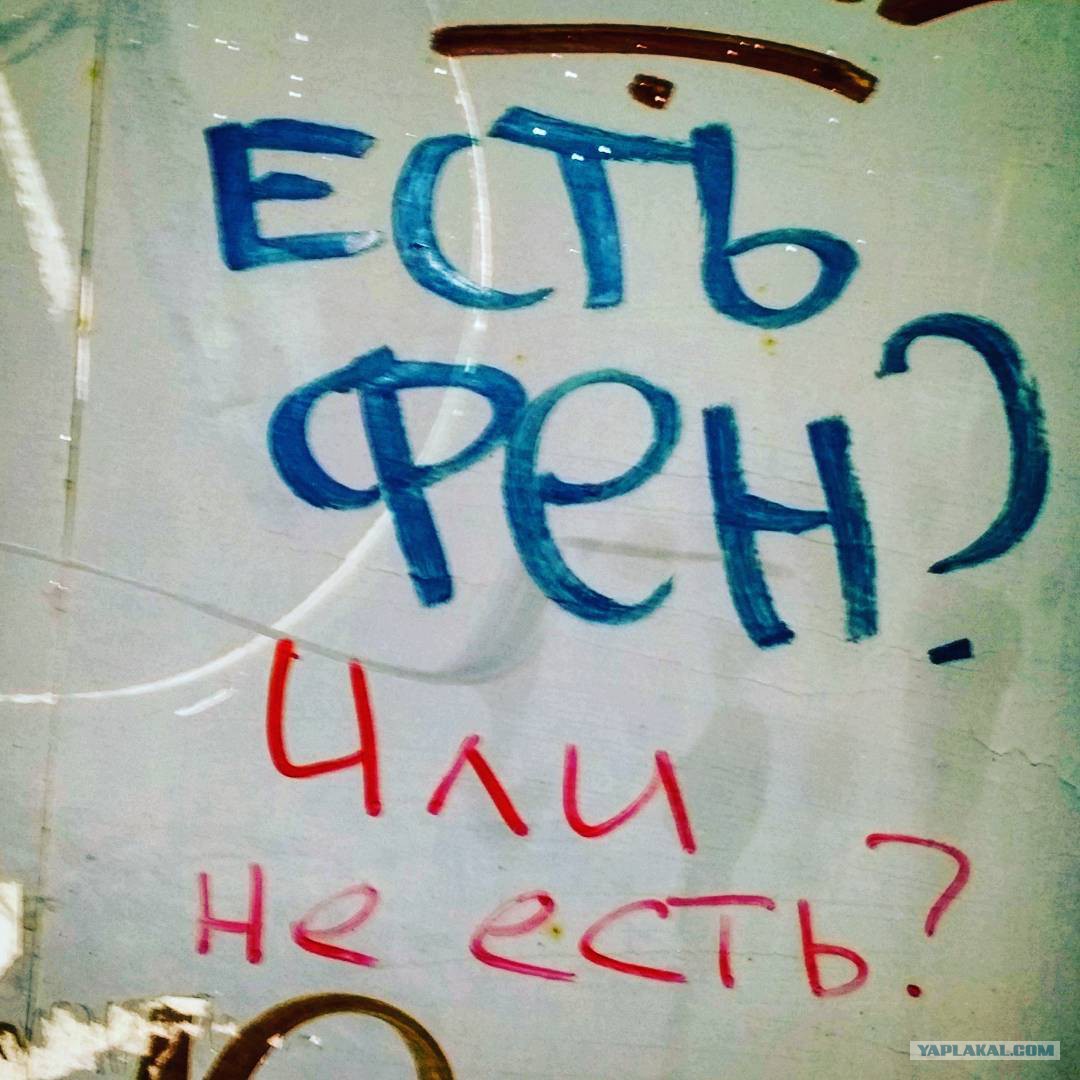 ЕСТЬ
ФеН?
Или
не есть?
YAPLAKAL.COM